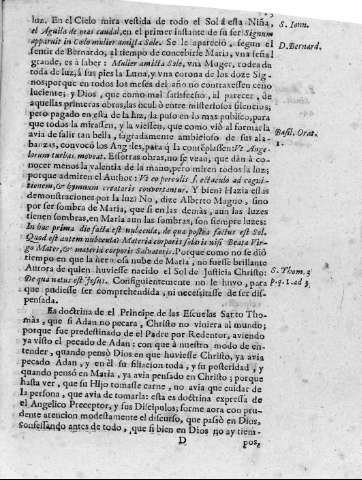 luz. En el Cielo mira vestida de todo el Sol à esta Niña,
el Aguila de otas caudal, en el primer instante de su ser Signum
S. Ioan.
apparuit in Cœlo mulier amicta Sole. Se le apareciò, segun el
sentir de Bernardo, al tiempo de concebirse Maria, vna señal
D. Bernard.
grande, es à saber: Mulier amicta Sole, vna Muger, rodeada
toda de luz, à sus pies la Luna, y vna corona de los doze Sig-
nos; porque en todos los meses del año no contraxessen ceño
luciente; y Dios, que como mal satisfecho, al parecer, de
aquellas primeras obras, las ocultò entre misteriosos silencios;
pero pagado en esta de la luz, la puso en lo mas publico, para
que todos la mirassen, y la viessen, que como viò al formarla
avia de salir tan bella, sagradamente ambicioso de sus ala-
Basil. Orat.
1.
banzas, convocò los Angeles, para que la contéplassen: Ve Ange-
lorum turbas moveat. Essotras obras, no se vean, que dàn à co-
nocer menos la valentia de la mano, pero miren todos la luz;
porque admiren al Author:
tionem, & hymnum creatoris convertantur. Y bien? Hazia essas
demonstraciones por la luz? No, dize Alberto Magno, sino
por ser sombra de Maria, que si en las demàs, aun las luzes
tienen sombras, en Maria aun las sombras, son siempre luzes:
In hac prima die facta est nubecula, de qua postea factus est Sol.
Quid est autem nubecula? Materia corporis solis nisi Beata Virgo
Mater, & materia corporis Salvatoris. Porque como no se diò
tiempo en que la hermosa nube de Maria, no fuesse brillante
Aurora de quien huviesse nacido el Sol de Justicia Christo:
De qua natus est Jesus. Consiguientemente no le huvo, para
S. Thom. 3
p. q. 1. ad 3.
que pudiesse ser comprehendida, ni necessitasse de ser dis-
pensada.
Es doctrina de el Principe de las Escuelas Santo Tho-
màs, que si Adan no pecara, Christo no viniera al mundo;
porque fue predestinado de el Padre por Redentor, aviendo
ya visto el pecado de Adan: con que à nuestro modo de en-
tender, quando pensò Dios en que huviesse Christo, ya avia
pecado Adan, y en èl su filiacion toda, y su posteridad, y
quando pensò en Maria, ya avia pensado en Christo; porque
hasta ver, que su Hijo tomasse carne, no avia que cuidar de
la persona, que avia de tomarla: esta es doctrina expressa de
el Angelico Preceptor, y sus Discipulos; forme aora con pru-
dente atencion modestamente el discurso, que passò en Dios,
confessando antes de todo, que si bien en Dios no ay tiem-
D
pos,